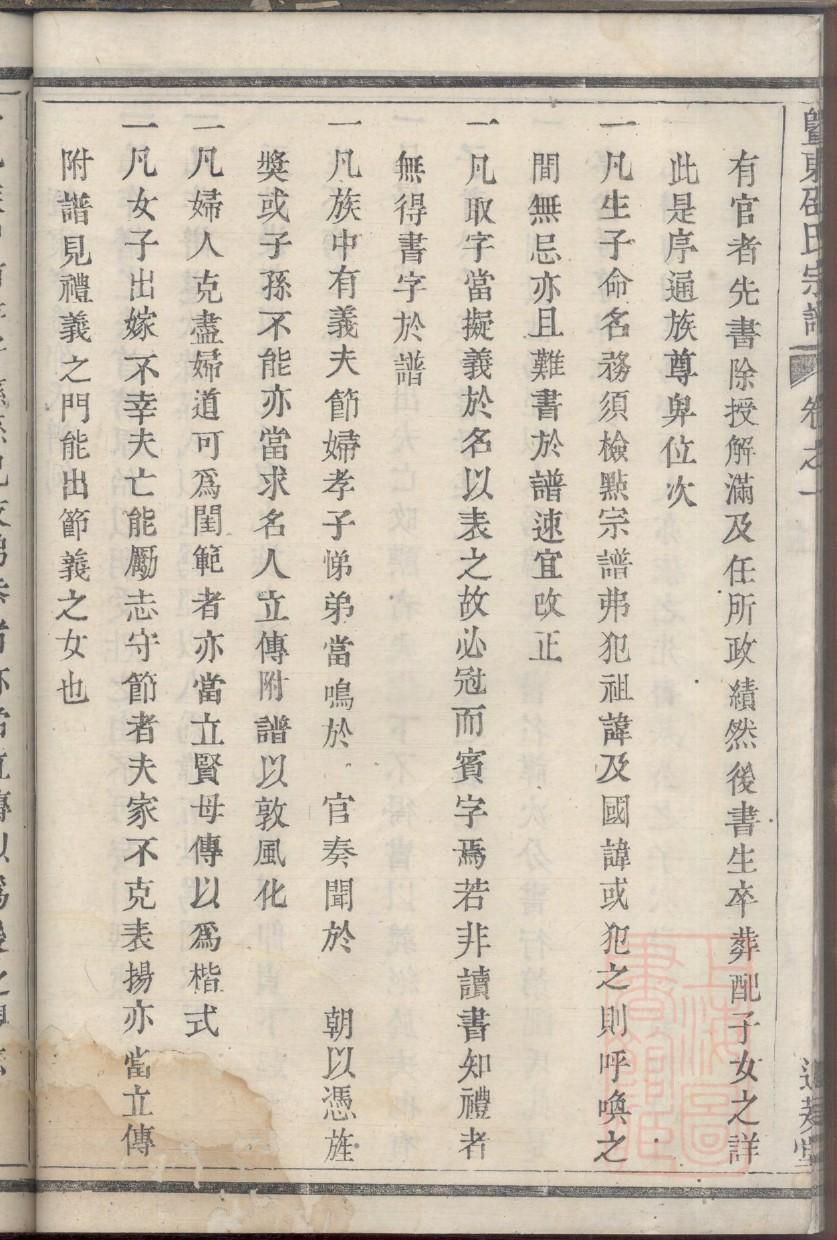 暨東邵氏宗譜 卷之一
有官者先書除授解滿及任所政績然後書生卒葬配子女之詳
此是序通族尊卑位次
一凡生子命名務須檢點宗譜弗犯祖諱及國諱或犯之則呼喚之
間無忌亦且難書於譜速宜改正
一凡取字當擬義於名以表之故必冠而賓字焉若非讀書知禮者
無得書字於譜
一凡族中有義夫節婦孝子悌弟當鳴於 官奏聞於 朝以憑旌
獎或子孫不能亦當求名人立傳附譜以敦風化
一凡婦人克盡婦道可爲閨範者亦當立賢母傳以爲楷式
一凡女子出嫁不幸夫亡能勵志守節者夫家不克表揚亦當立傳
附譜見禮義之門能出節義之女也
上海圖書館藏